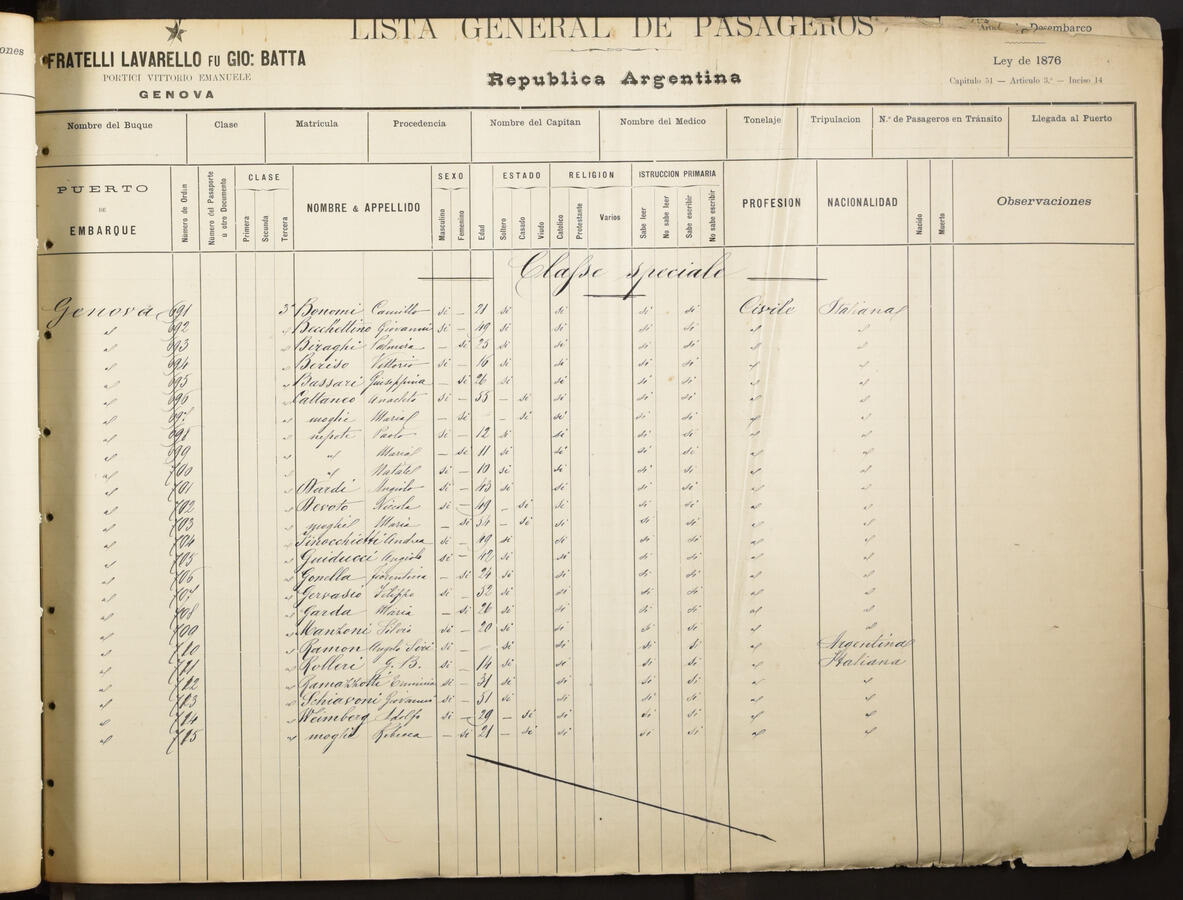 ones
LISTA GENERAL DE PASAGEROS
Desembarco
FRATELLI LAVARELLO FU GIO: BATTA
PORTICI VITTORIO EMANUELE
GENOVA
Republica Argentina
Ley de 1876
Capitulo 51 — Articulo 3.º — Inciso 14
Nombre del Buque Clase Matricula Procedencia Nombre del Capitan Nombre del Medico Tonelaje Tripulacion N.º de Pasageros en Tránsito Llegada al Puerto
PUERTO DE EMBARQUE Número de Ordén Número del Pasaporte ú otro Documento CLASE Primera Secunda Tercera NOMBRE & APPELLIDO SEXO Masculino Femenino Edad ESTADO Soltero Casado Viudo RELIGION Catolico Protestante Varios ISTRUCCION PRIMARIA Sabe leer No sabe leer Sabe escribir No sabe escribir PROFESION NACIONALIDAD Nacido Muerto Observaciones
Classe speciale
Genova 691 3ª Bonomi Camillo si — 21 si si si si Civile Italiana
" 692 " Becchellino Giovanni si — 49 si si si si " "
" 693 " Biraghi Palmira — si 25 si si si si " "
" 694 " Beriso Vittorio si — 16 si si si si " "
" 695 " Bassari Giuseppina — si 26 si si si si " "
" 696 " Cattaneo Anacleto si — 55 — si si si si " "
" 697 " moglie Maria — si — si si si si " "
" 698 " nipote Paolo si — 12 si si si si " "
" 699 " " Maria — si 11 si si si si " "
" 700 " " Natale si — 10 si si si si " "
" 701 " Dardi Angiolo si — 43 si si si si " "
" 702 " Devoto Nicola si — 49 — si si si si " "
" 703 " moglie Maria — si 36 — si si si si " "
" 704 " Finocchietti Andrea si — 19 si si si si " "
" 705 " Guiducci Angiolo si — 42 si si si si " "
" 706 " Gonella Fiorentina — si 24 si si si si " "
" 707 " Gervasio Filippo si — 52 si si si si " "
" 708 " Garda Maria — si 26 si si si si " "
" 709 " Manzoni Silvio si — 20 si si si si " "
" 710 " Ramon Angelo si — si si si si " Argentina
" 711 " Rolleri G. B. si — 14 si si si si " Italiana
" 712 " Ramazzotti si — 31 si si si si " "
" 713 " Schiavoni Giovanni si — 51 si si si si " "
" 714 " Weimberg Adolfo si — 29 — si si si si " "
" 715 " moglie Rebecca — si 21 — si si si si " "